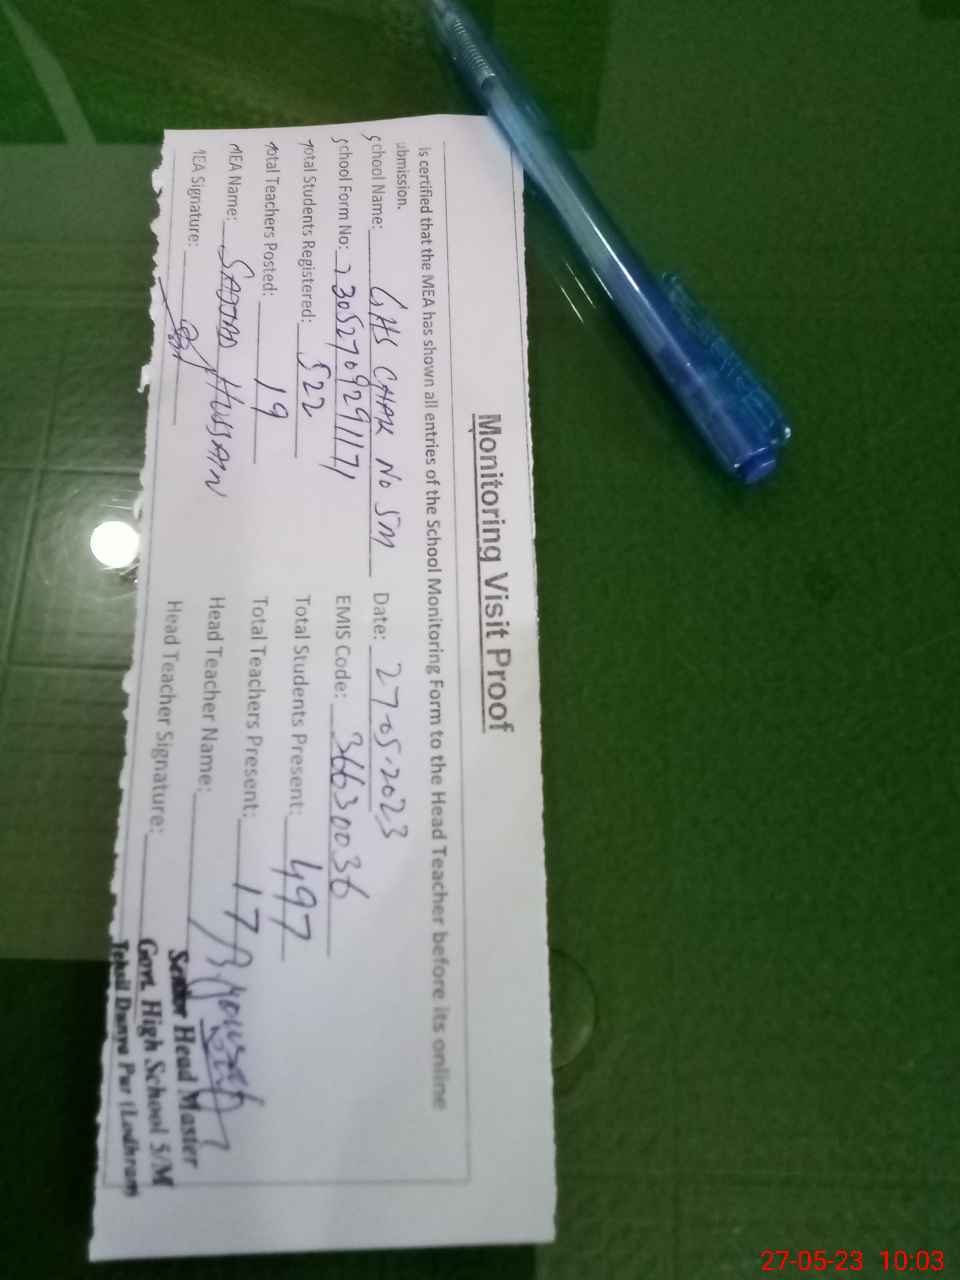 Monitoring Visit Proof
is certified that the MEA has shown all entries of the School Monitoring Form to the Head Teacher before its online
ubmission.
School Name: GHS CHAK NO 5M Date: 27-05-2023
School Form No: 73052709291171 EMIS Code: 36630036
Total Students Registered: 522 Total Students Present: 497
Total Teachers Posted: 19 Total Teachers Present: 17
MEA Name: SAJJAD HUSSAIN Head Teacher Name:
MEA Signature: Head Teacher Signature:
Senior Head Master
Govt. High School 5/M
Tehsil Dunya Pur (Lodhran)
27-05-23 10:03